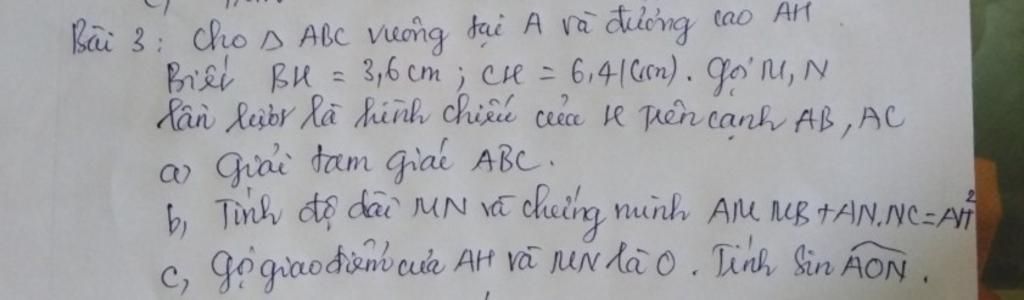 Bài 3: Cho △ ABC vuông tại A và đường cao AH
Biết BH = 3,6 cm; CH = 6,4 (cm). Gọi M, N
lần lượt là hình chiếu của H trên cạnh AB, AC
a) Giải tam giác ABC.
b, Tính độ dài MN và chứng minh AM.MB + AN.NC = AH²
c, Gọi giao điểm của AH và MN là O. Tính Sin AON.